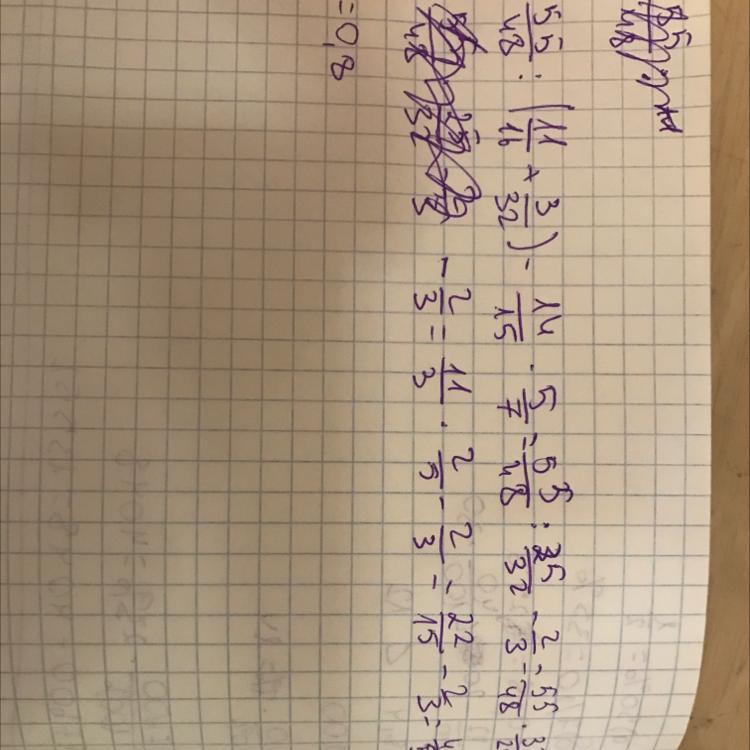 55/48 : (11/16 + 3/32) - 14/15 · 5/7 = 55/48 : 25/32 - 2/3 = 55/48 · 3
- 2/3 = 11/3 · 2/5 - 2/3 = 22/15 - 2/3 =
= 0,8